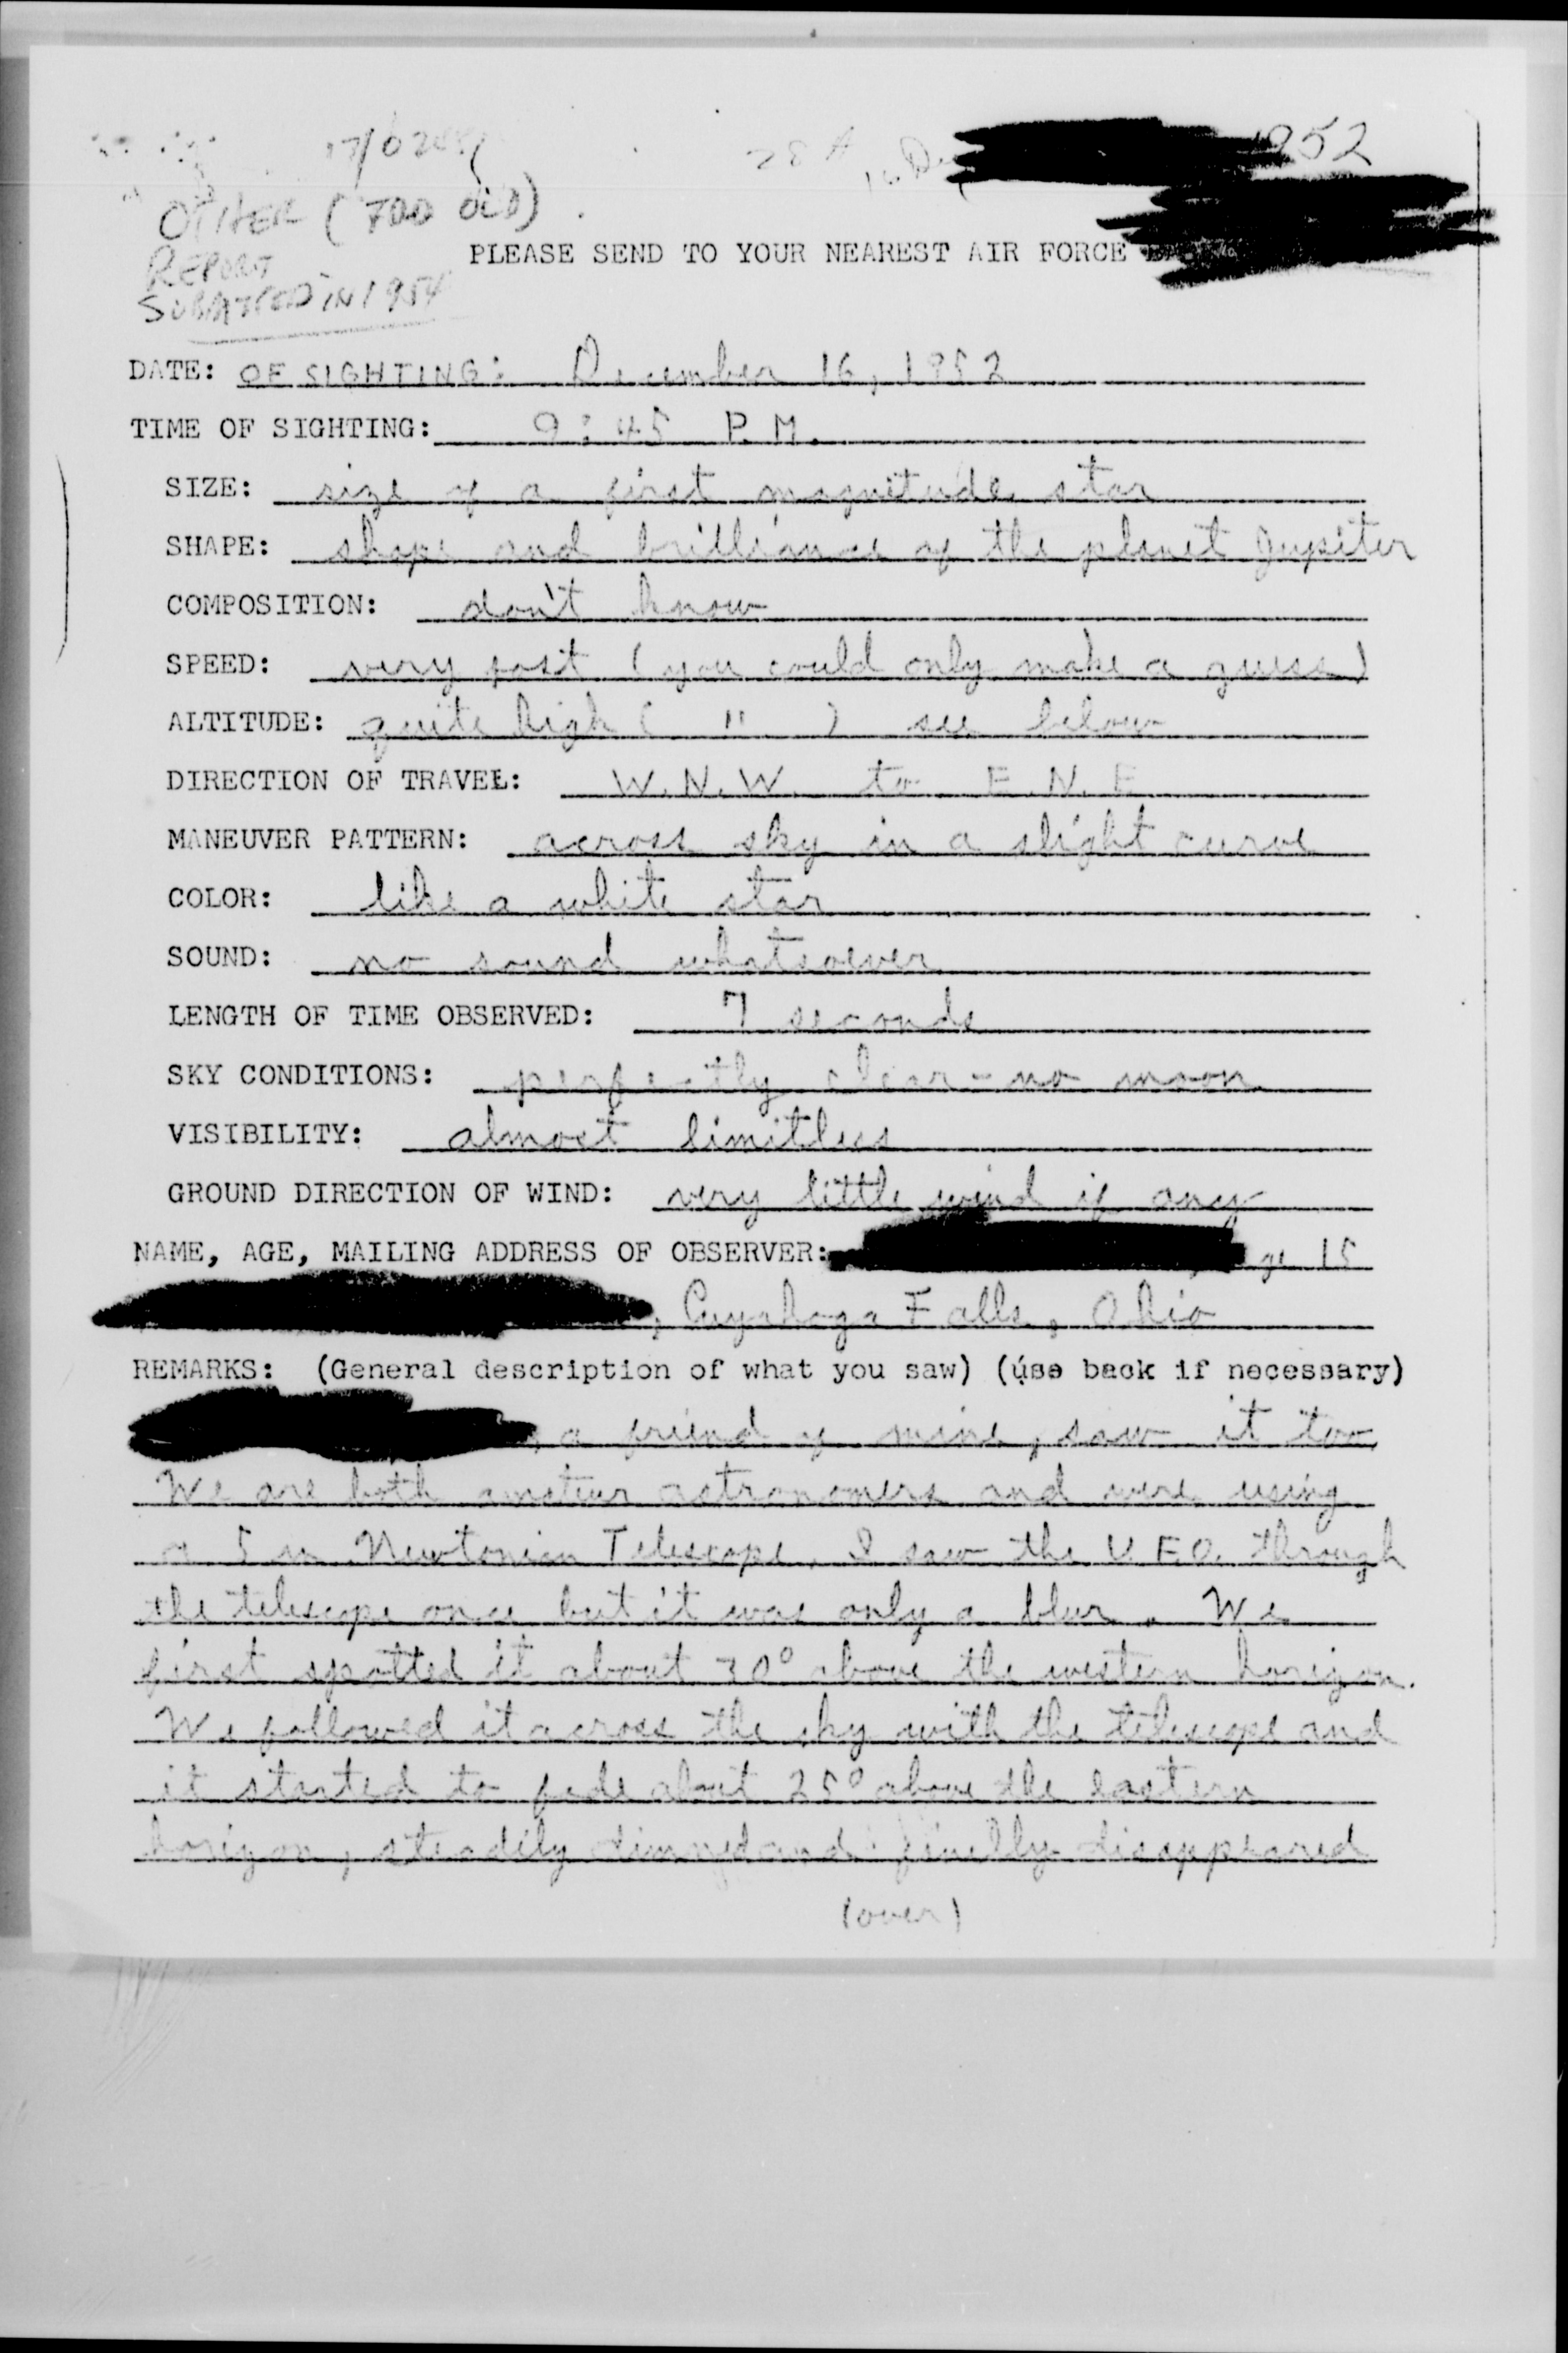 17/0245Z
16 Dec 1952
OTHER (TOO OLD)
REPORT
SUBMITTED IN 1954
PLEASE SEND TO YOUR NEAREST AIR FORCE
DATE: OF SIGHTING: December 16, 1952
TIME OF SIGHTING: 9:45 P.M.
SIZE: size of a first magnitude star
SHAPE: shape and brilliance of the planet Jupiter
COMPOSITION: don't know
SPEED: very fast (you could only make a guess)
ALTITUDE: quite high ( " ) see below
DIRECTION OF TRAVEL: W.N.W. to E.N.E
MANEUVER PATTERN: across sky in a slight curve
COLOR: like a white star
SOUND: no sound whatsoever
LENGTH OF TIME OBSERVED: 7 seconds
SKY CONDITIONS: perfectly clear - no moon
VISIBILITY: almost limitless
GROUND DIRECTION OF WIND: very little wind if any
NAME, AGE, MAILING ADDRESS OF OBSERVER: 15
, Cuyahoga Falls, Ohio
REMARKS: (General description of what you saw) (use back if necessary)
, a friend of mine, saw it too
We are both amateur astronomers and were using
a 5 in Newtonian Telescope. I saw the U.F.O. through
the telescope once but it was only a blur. We
first spotted it about 30° above the western horizon.
We followed it across the sky with the telescope and
it started to fade about 25° above the eastern
horizon, steadily dimmed and finally disappeared
(over)